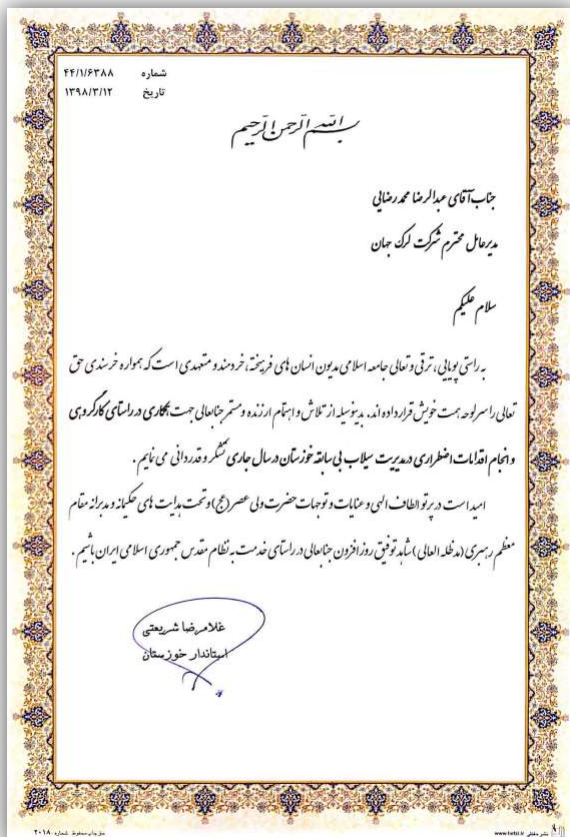 شماره ۴۴/۱/۶۳۸۸
تاریخ ۱۳۹۸/۳/۱۲
بسم الله الرحمن الرحیم
جناب آقای عبدالرضا محمدرضایی
مدیرعامل محترم شرکت لرک جهان
سلام علیکم
به راستی پویایی، ترقی و تعالی جامعه اسلامی مدیون انسان های فرهیخته، خردمند و متعهدی است که همواره خرسندی حق
تعالی را سرلوحه همت خویش قرار داده اند. بدینوسیله از تلاش و اهتمام ارزنده و مستمر جنابعالی جهت همکاری در راستای کارگروهی
و انجام اقدامات اضطراری در مدیریت سیلاب بی سابقه خوزستان در سال جاری تشکر و قدردانی می نمایم.
امید است در پرتو الطاف الهی و عنایات و توجهات حضرت ولی عصر (عج) و تحت هدایت های حکیمانه و مدبرانه مقام
معظم رهبری (مدظله العالی) شاهد توفیق روز افزون جنابعالی در راستای خدمت به نظام مقدس جمهوری اسلامی ایران باشیم.
غلامرضا شریعتی
استاندار خوزستان
حق چاپ محفوظ شماره ۲۰۱۸